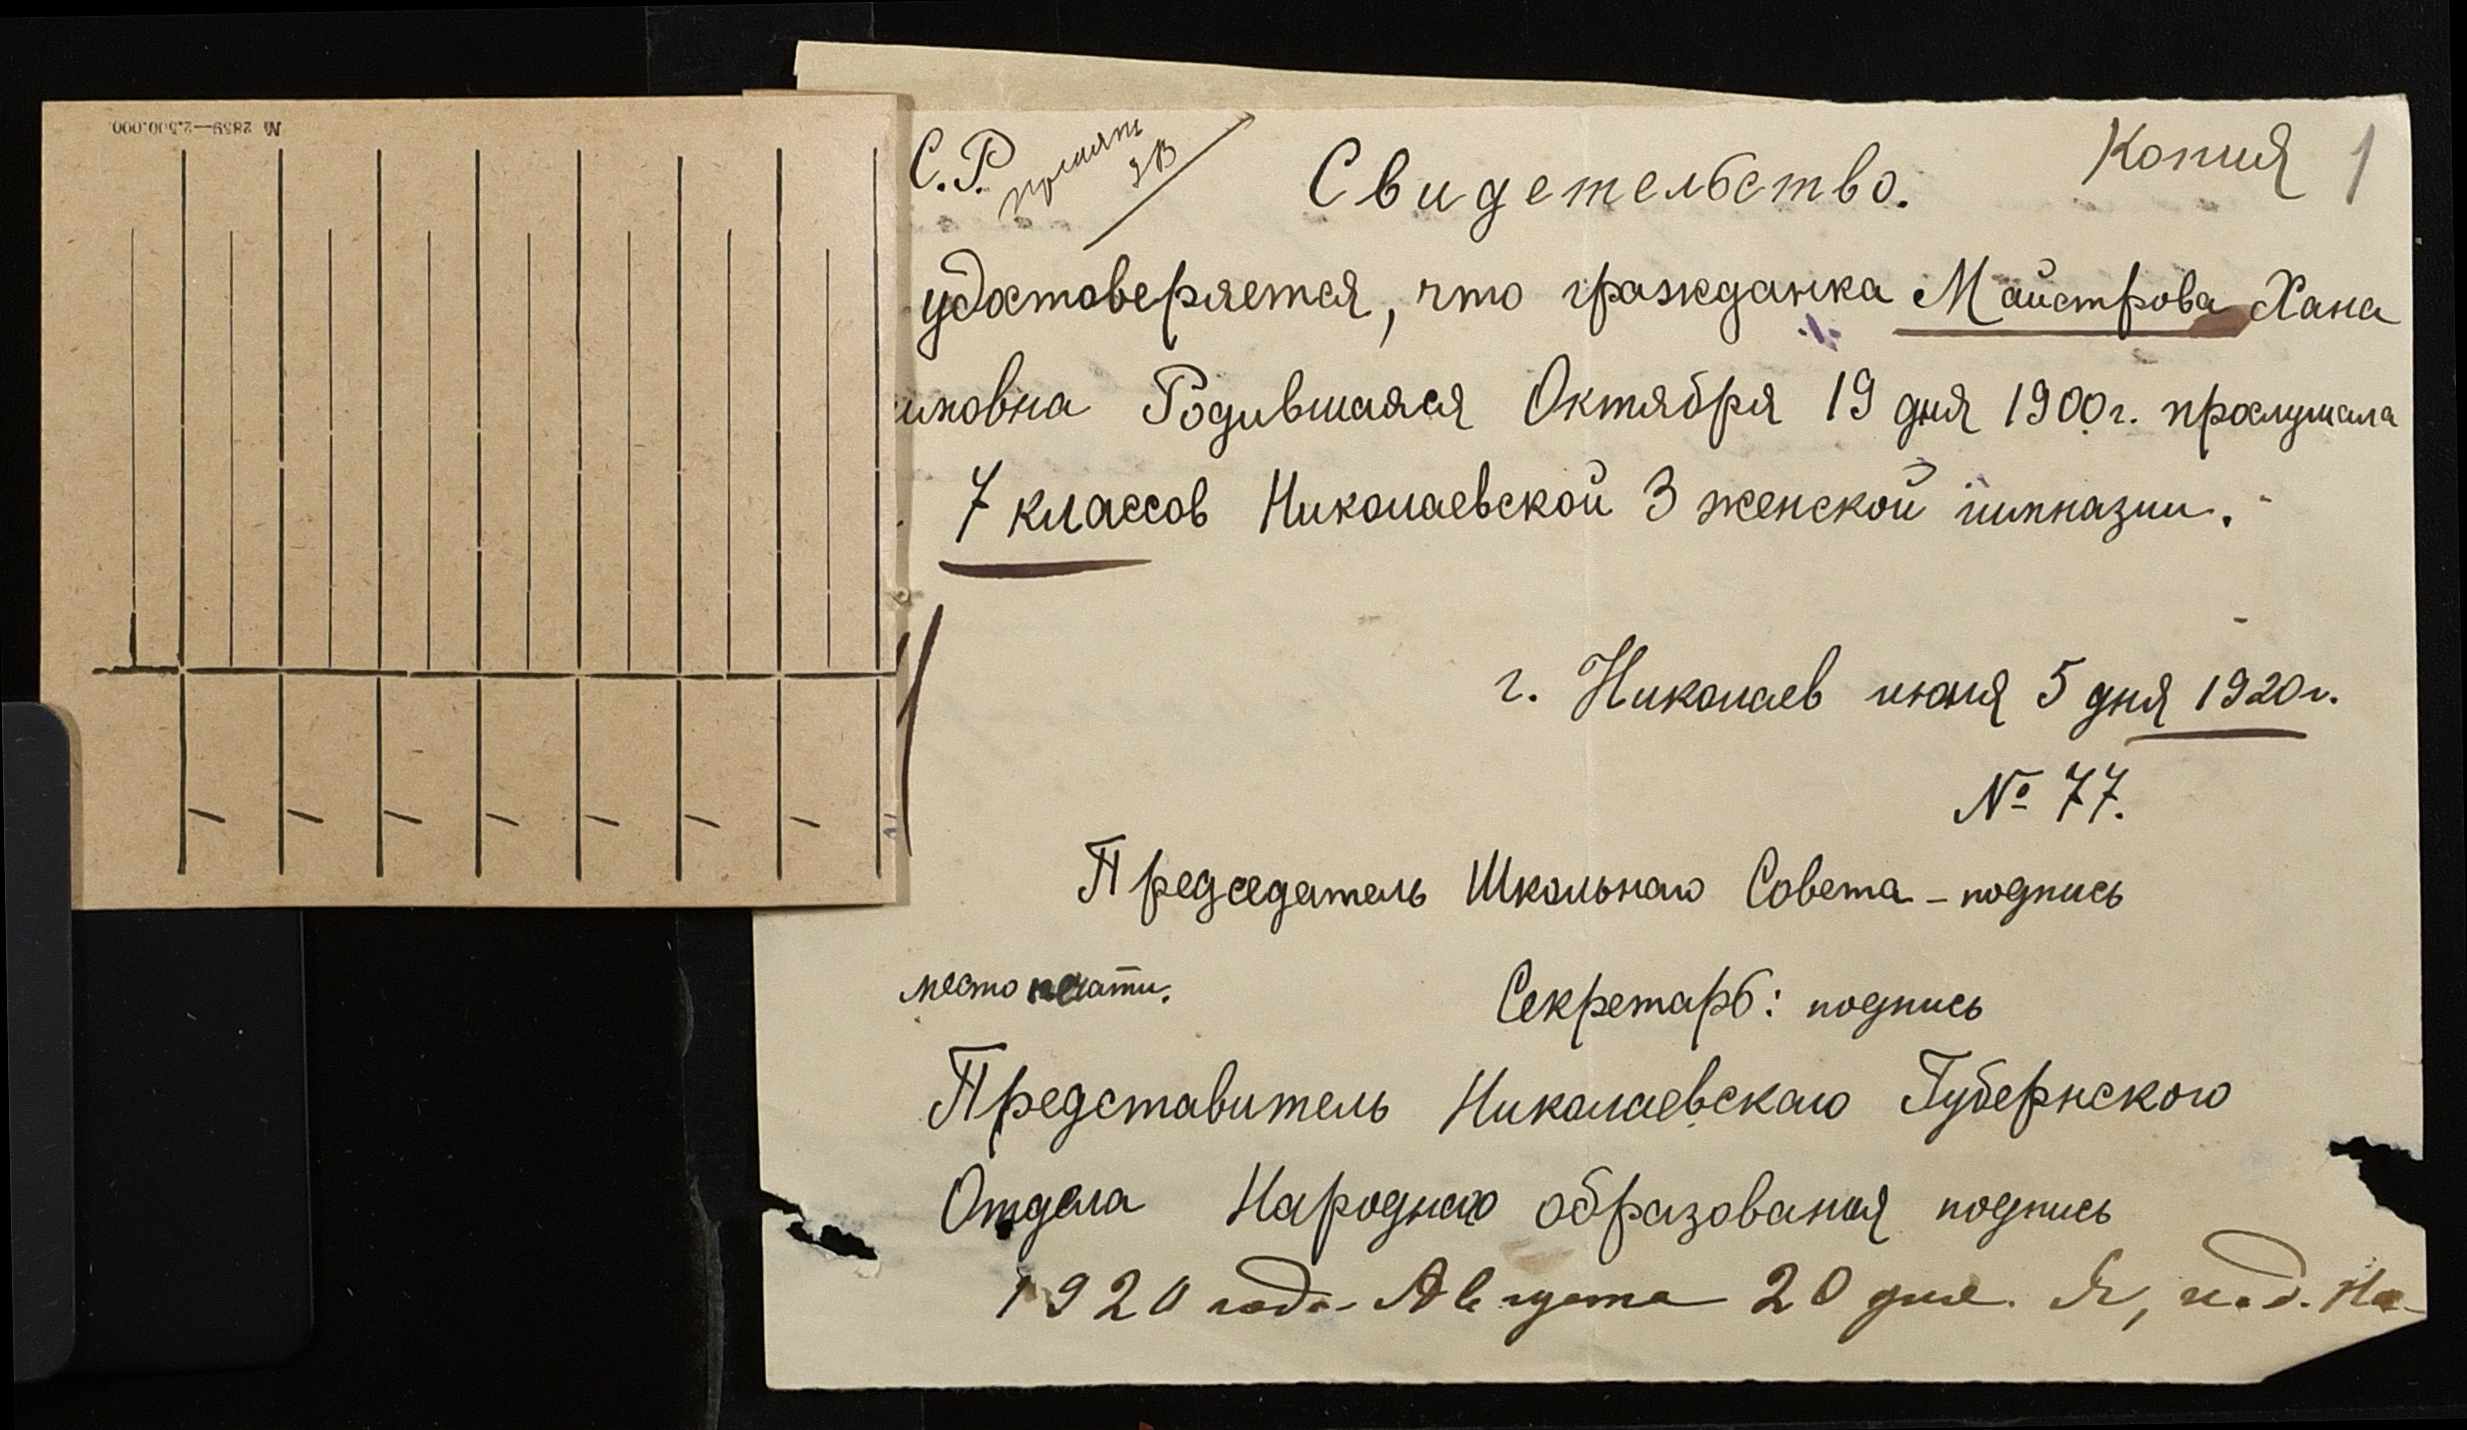 № 2859—2.500.000.
Копия 1
С.Р. принять
Свидетельство.
удостоверяется, что гражданка Майстрова Хана
имовна Родившаяся Октября 19 дня 1900г. прослушала
7 классов Николаевской 3 женской гимназии.
г. Николаев июня 5 дня 1920г.
№ 77.
Председатель Школьнаго Совета - подпись
место печати.
Секретарь: подпись
Представитель Николаевскаго Губернского
Отдела Народнаго образования подпись
1920 года Августа 20 дня. Я, нод. На-